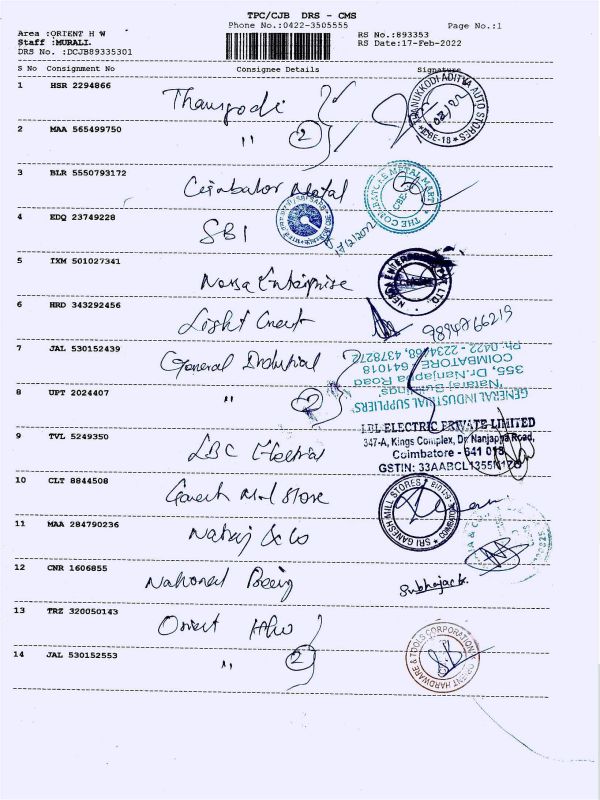 TPC/CJB DRS - CMS
Phone No.:0422-3505555
Page No.:1
Area :ORIENT H W
Staff :MURALI.
DRS No. :DCJB89335301
RS No.:893353
RS Date:17-Feb-2022
S No Consignment No Consignee Details Signature
1 HSR 2294866
2 MAA 565499750 " 2
3 BLR 5550793172
THE COIMBATORE METAL MART
CBE
4 EDQ 23749228 SBI
17/2/2022
5 IXM 501027341 Enterprise
6 HRD 343292456 Light
7 JAL 530152439 General Industrial
GENERAL INDUSTRIAL SUPPLIERS
'Nataraj Buildings'
355, Dr.Nanjappa Road
COIMBATORE - 641018
8 UPT 2024407 " 2
LBL ELECTRIC PRIVATE LIMITED
347-A, Kings Complex, Dr. Nanjappa Road,
Coimbatore - 641 018
GSTIN: 33AABCL1355N1ZO
9 TVL 5249350 LBC Electrical
10 CLT 8844508 Ganesh Mill Store
SRI GANESH MILL STORES
11 MAA 284790236 Nataraj & Co
12 CNR 1606855 National
13 TRZ 320050143 Orient H/w
14 JAL 530152553 " 2
ORIENT HARDWARE & TOOLS CORPORATION